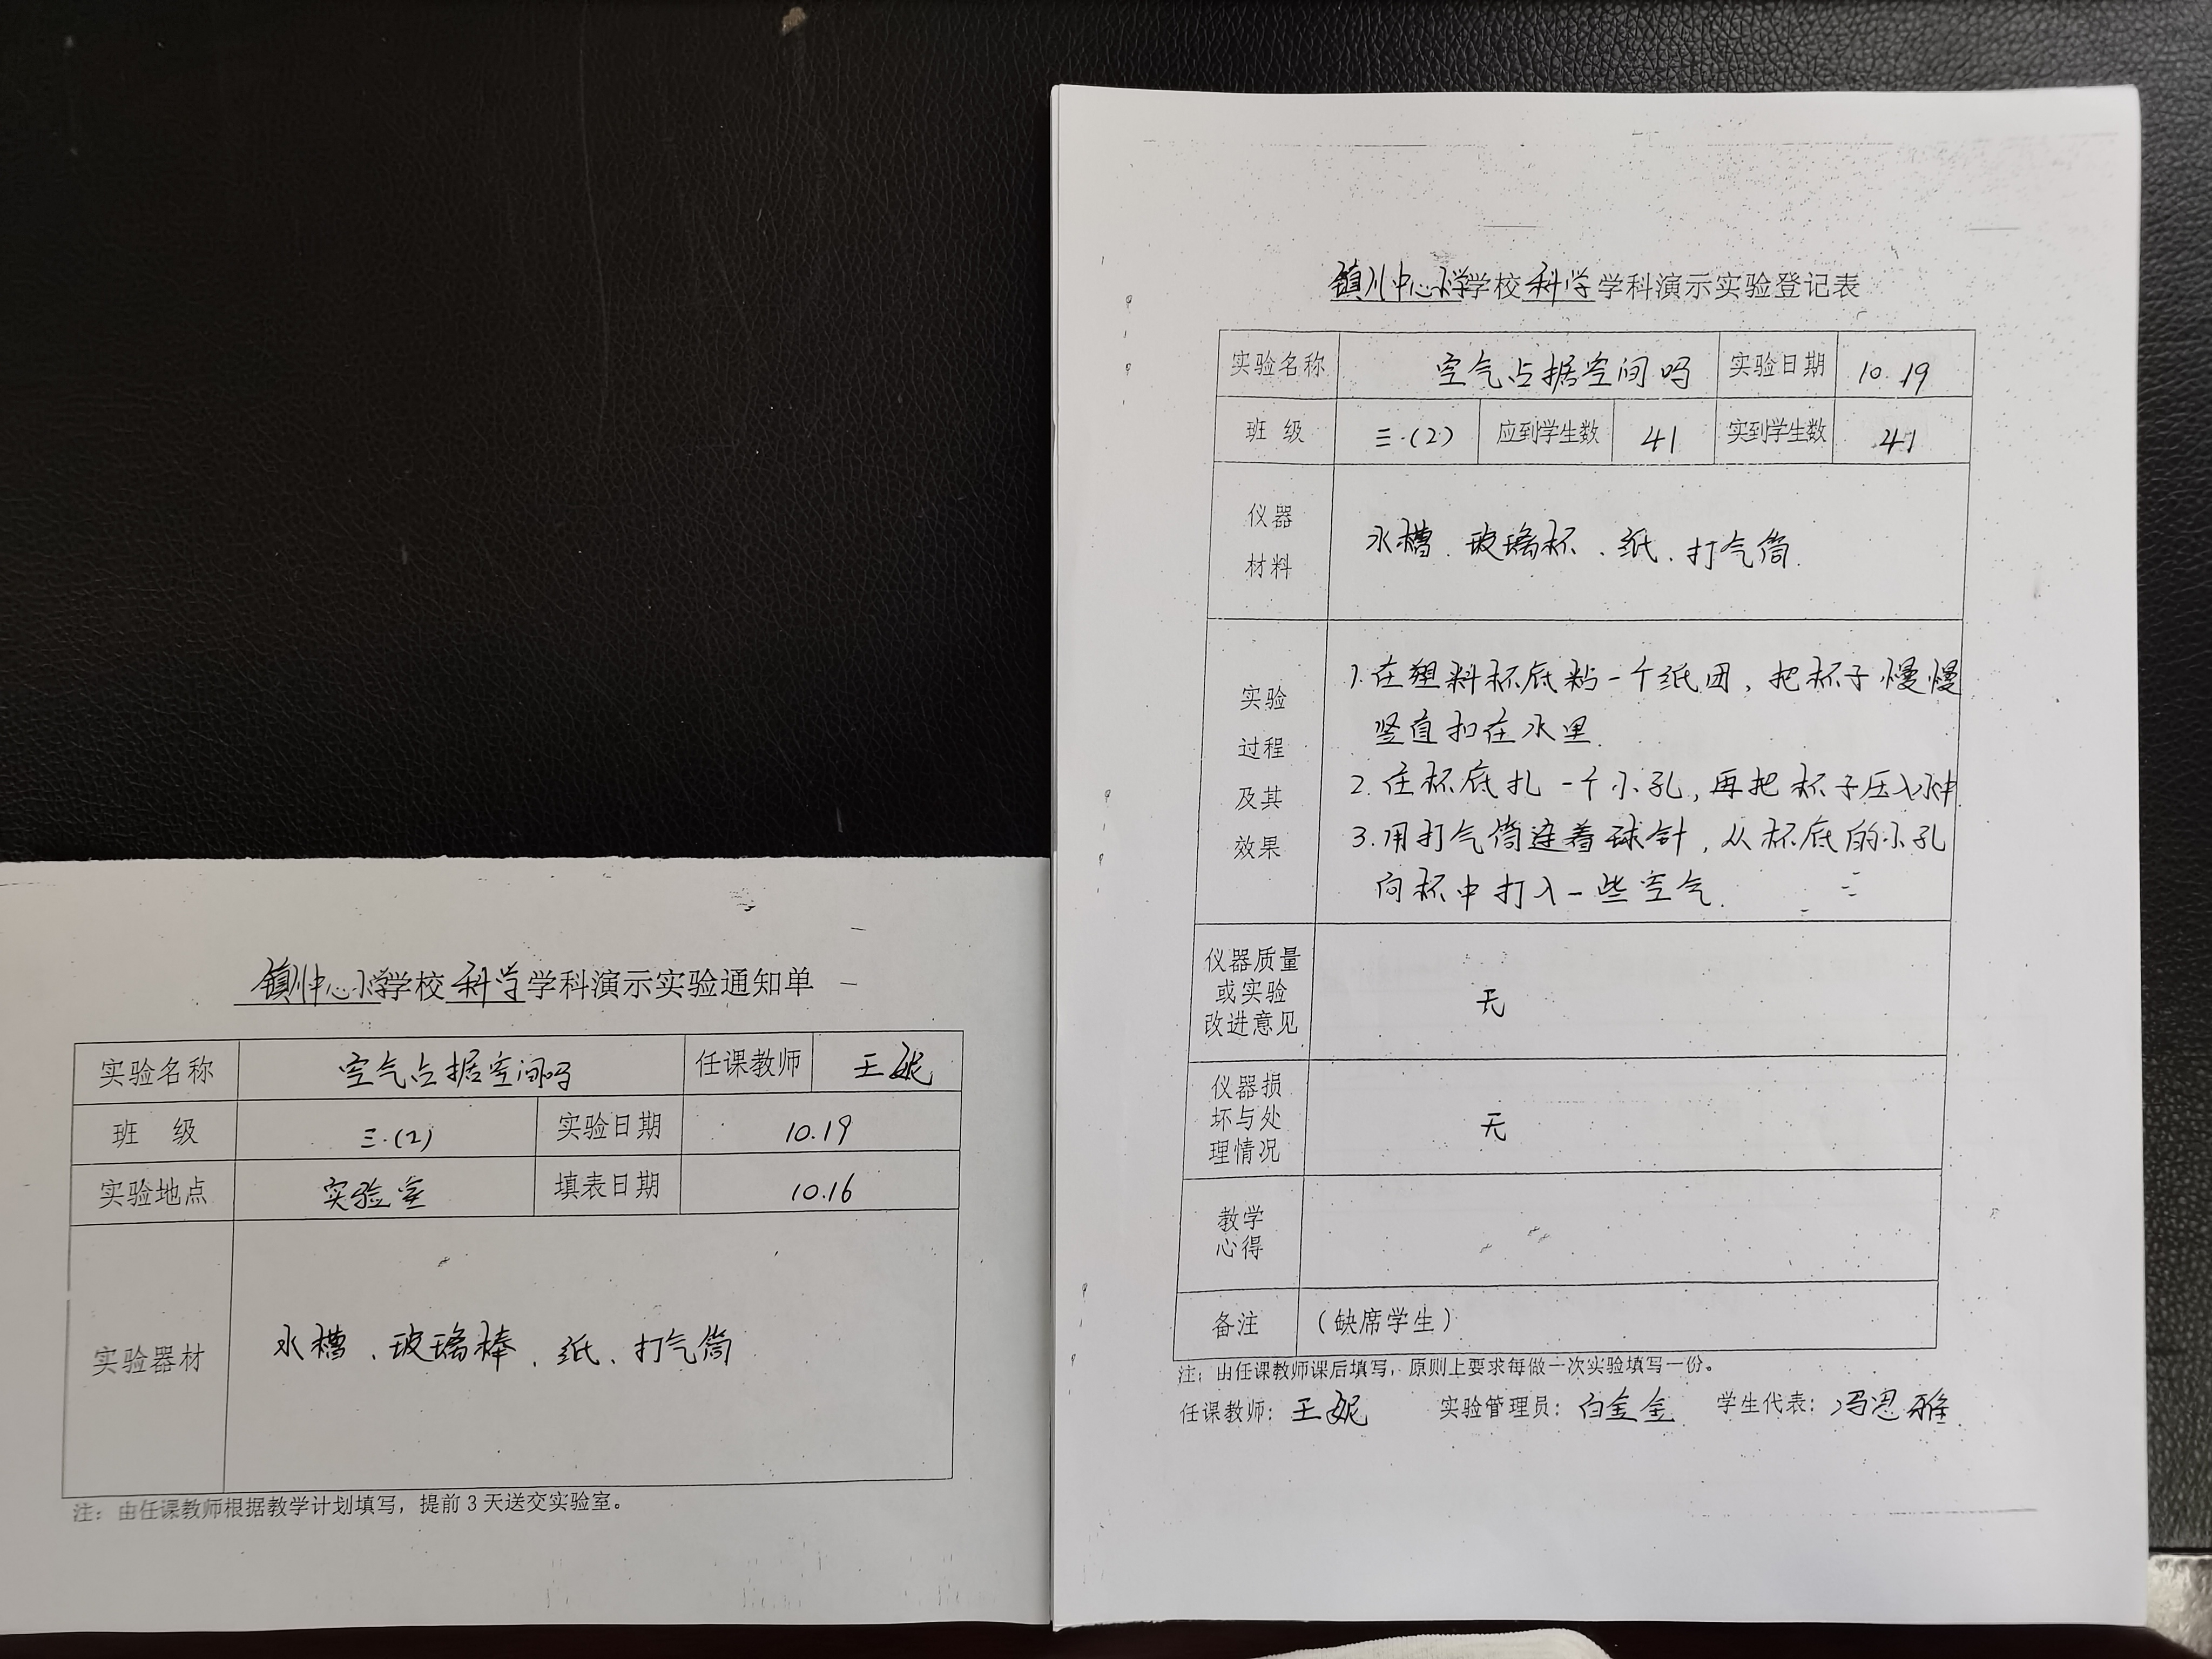 镇川中心小学学校科学学科演示实验通知单
实验名称 空气占据空间吗 任课教师 王妮
班 级 三.(2) 实验日期 10.19
实验地点 实验室 填表日期 10.16
实验器材 水槽、玻璃棒、纸、打气筒
注：由任课教师根据教学计划填写，提前3天送交实验室。
镇川中心小学学校科学学科演示实验登记表
实验名称 空气占据空间吗 实验日期 10.19
班 级 三.(2) 应到学生数 41 实到学生数 41
仪器
材料
水槽、玻璃杯、纸、打气筒.
实验
过程
及其
效果
1.在塑料杯底粘一个纸团，把杯子慢慢
竖直扣在水里.
2.在杯底扎一个小孔，再把杯子压入水中
3.用打气筒连着球针，从杯底的小孔
向杯中打入一些空气.
仪器质量
或实验
改进意见
无
仪器损
坏与处
理情况
无
教学
心得
备注 （缺席学生）
注：由任课教师课后填写，原则上要求每做一次实验填写一份。
任课教师：王妮 实验管理员：白金金 学生代表：冯思雅